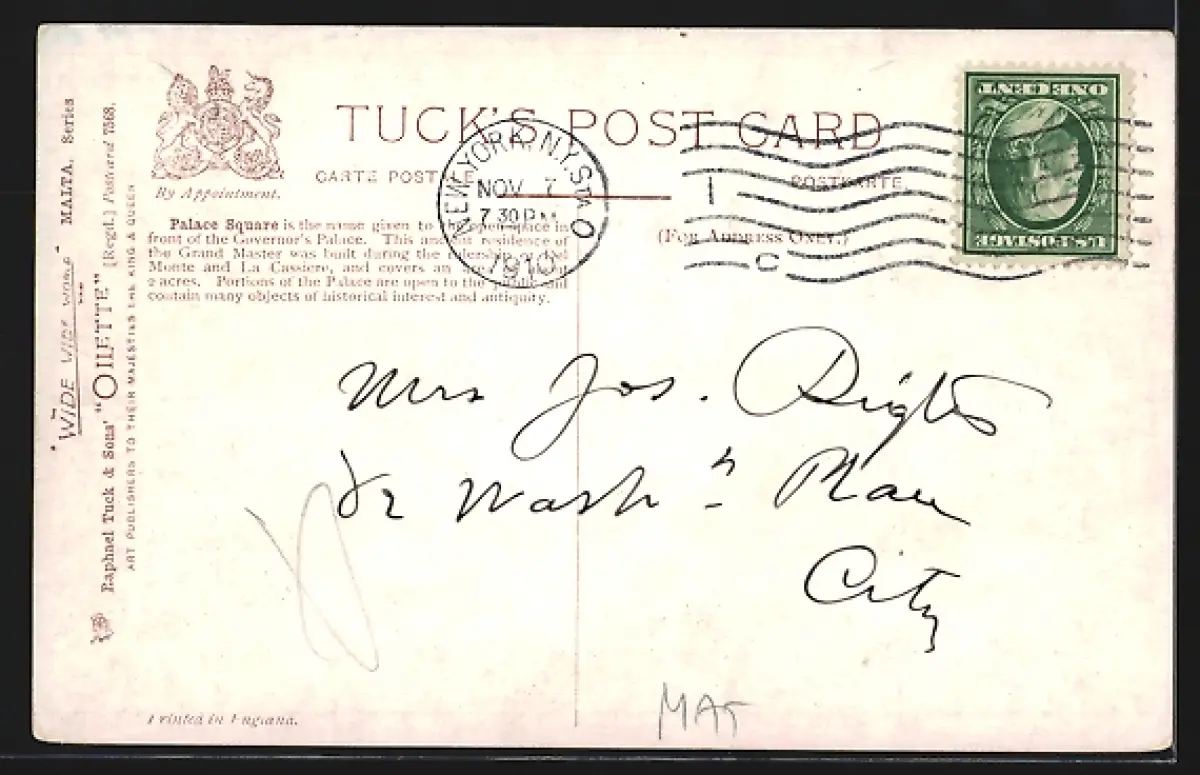 TUCK'S POST CARD
CARTE POSTALE
POSTKARTE.
(FOR ADDRESS ONLY.)
By Appointment.
Palace Square is the name given to the open space in
front of the Governor's Palace. This ancient residence of
the Grand Master was built during the rulership of Del
Monte and La Cassiere, and covers an
2 acres. Portions of the Palace are open to the public and
contain many objects of historical interest and antiquity.
NEW YORK, N.Y. STA. O
NOV 7
7 30 PM
1910
1
C
U.S. POSTAGE
ONE CENT
"WIDE WIDE WORLD" MALTA. Series
Raphael Tuck & Sons' "OILETTE" [Regd.] Postcard 7568.
ART PUBLISHERS TO THEIR MAJESTIES THE KING & QUEEN
Mrs Jos.
82 Wash'n Place
City
MAT
Printed in England.